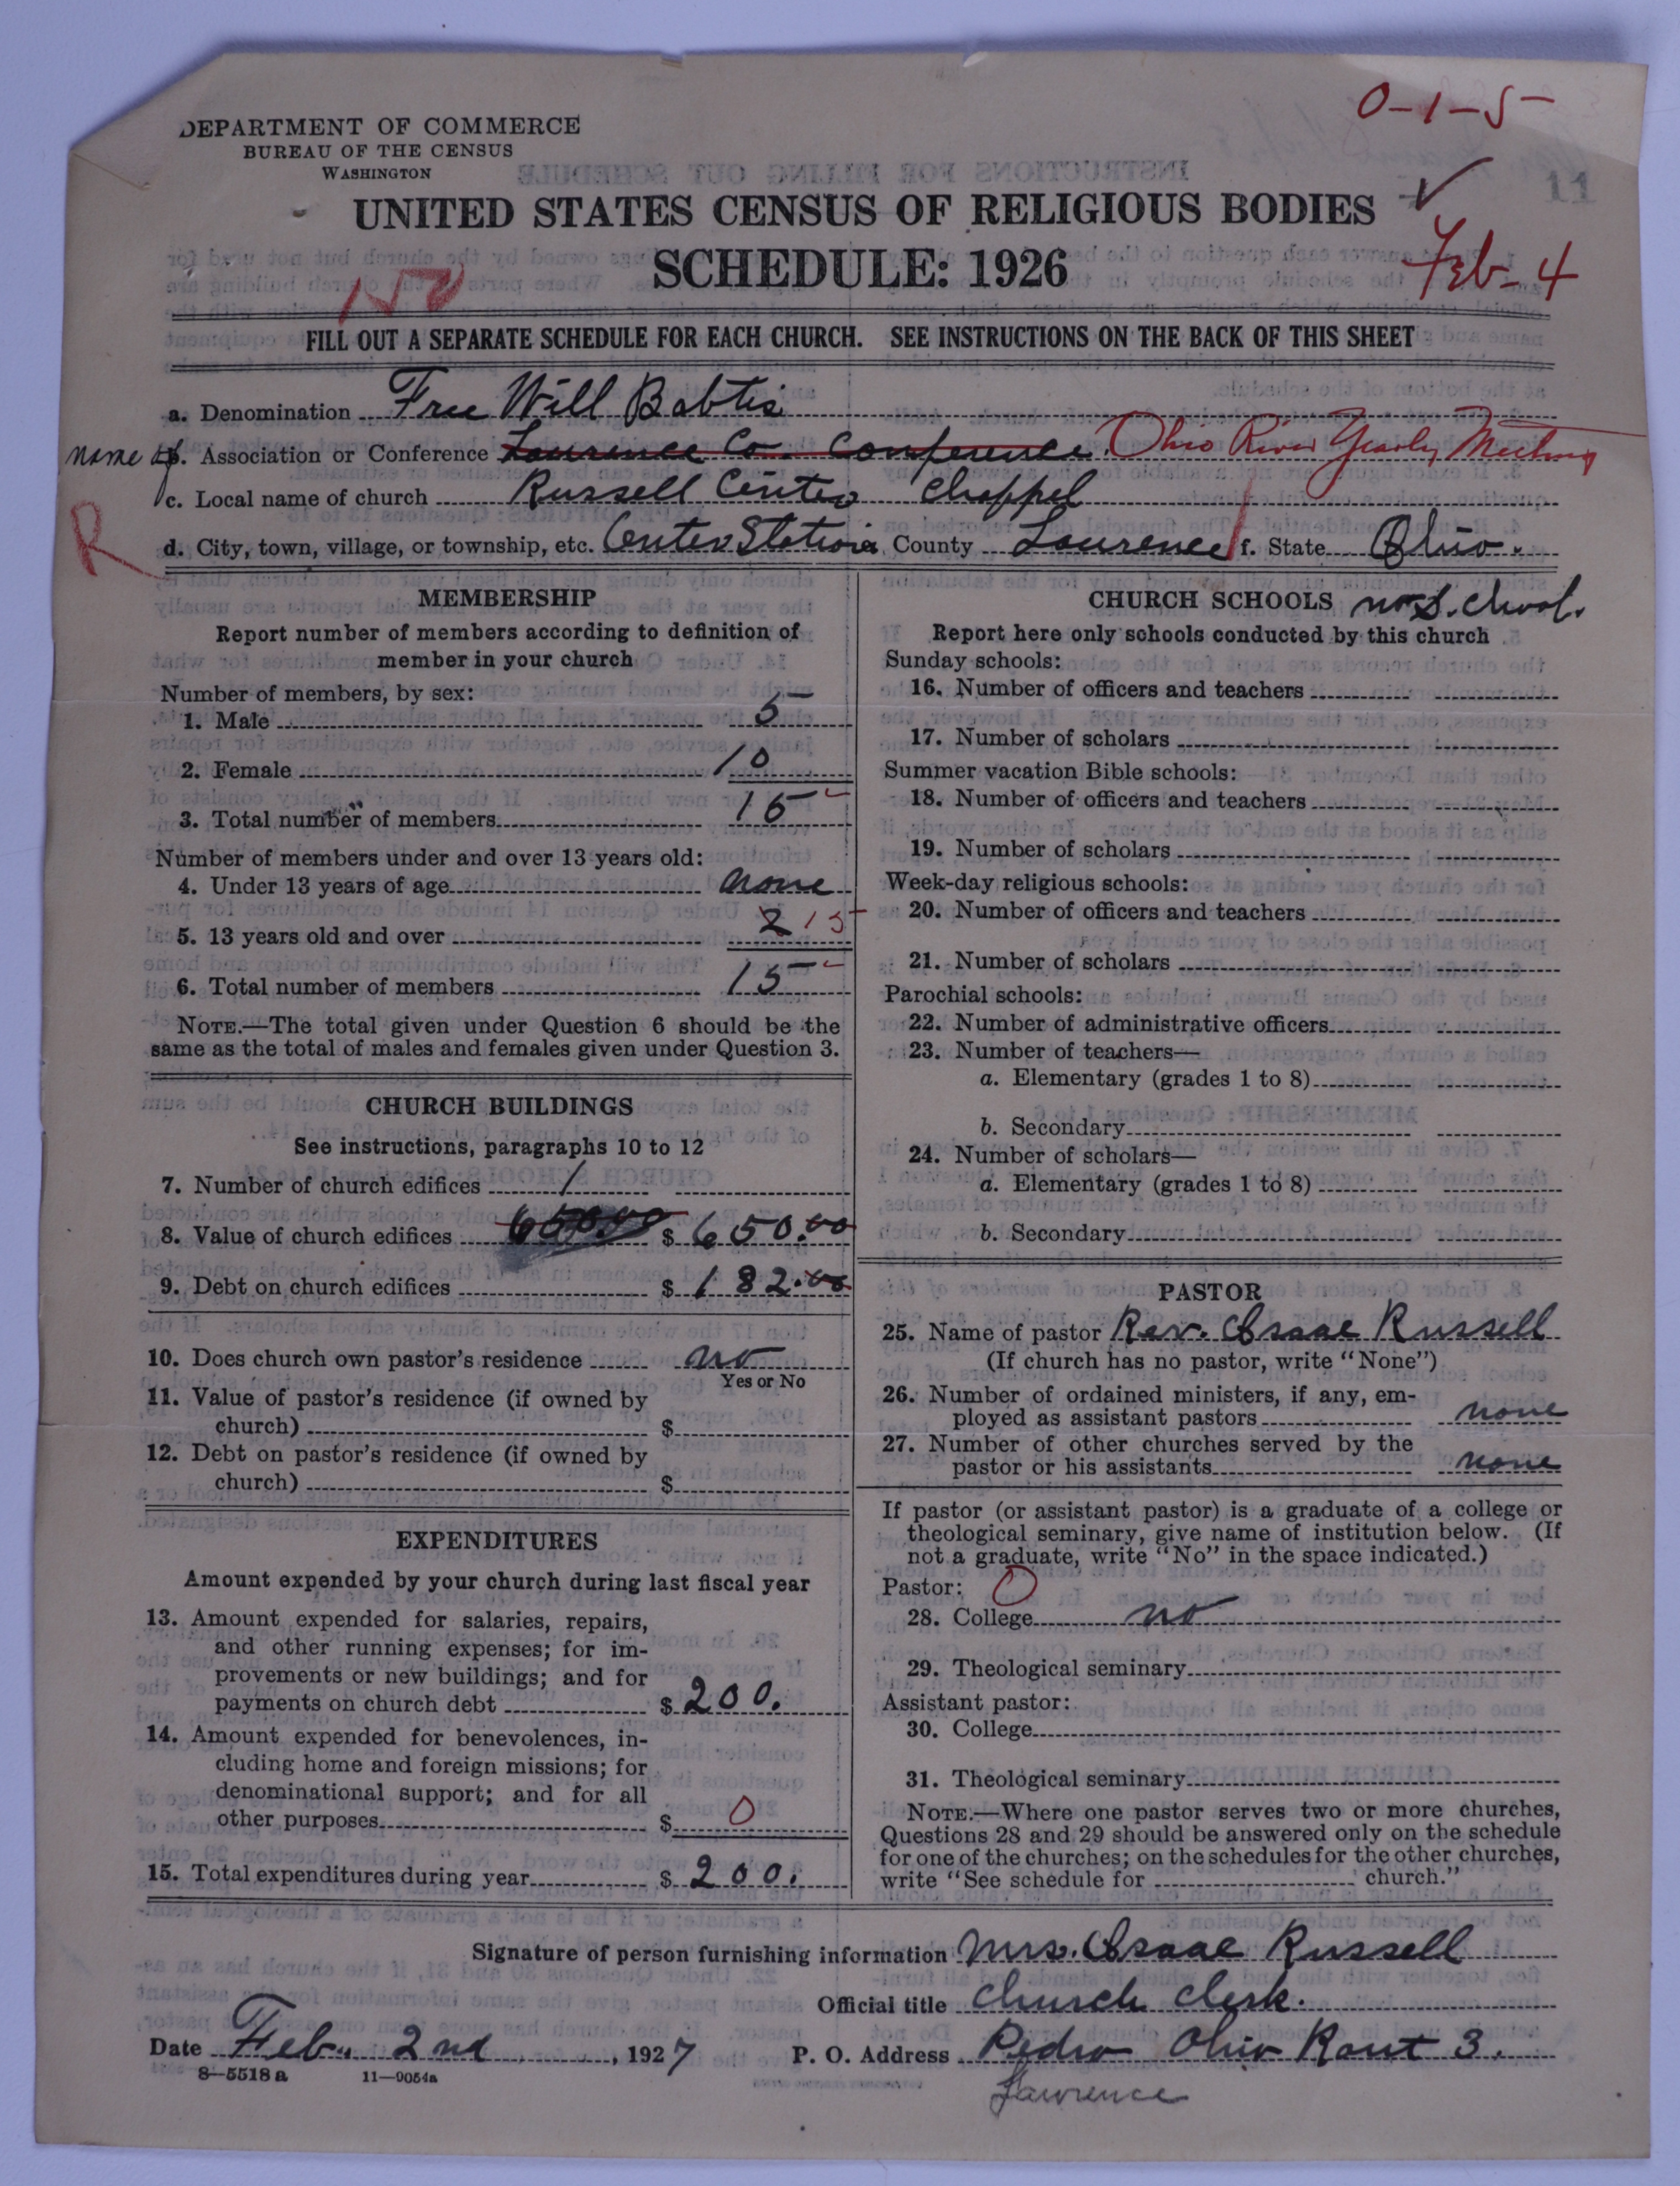 0-1-5
DEPARTMENT OF COMMERCE
BUREAU OF THE CENSUS
WASHINGTON
11
UNITED STATES CENSUS OF RELIGIOUS BODIES ✓
SCHEDULE: 1926
Feb-4
FILL OUT A SEPARATE SCHEDULE FOR EACH CHURCH. SEE INSTRUCTIONS ON THE BACK OF THIS SHEET
a. Denomination Free Will Babtis
name of b. Association or Conference Laurence Co. Conference. Ohio River Yearly Meeting
c. Local name of church Russell Center Chappel
R
d. City, town, village, or township, etc. Center Station e. County Laurence f. State Ohio.
MEMBERSHIP
Report number of members according to definition of
member in your church
Number of members, by sex:
1. Male 5
2. Female 10
3. Total number of members 15
Number of members under and over 13 years old:
4. Under 13 years of age none
5. 13 years old and over 2 15
6. Total number of members 15
NOTE.—The total given under Question 6 should be the
same as the total of males and females given under Question 3.
CHURCH BUILDINGS
See instructions, paragraphs 10 to 12
7. Number of church edifices 1
8. Value of church edifices 650.00 $ 650.00
9. Debt on church edifices $ 182.00
10. Does church own pastor's residence no
Yes or No
11. Value of pastor's residence (if owned by
church) $
12. Debt on pastor's residence (if owned by
church) $
EXPENDITURES
Amount expended by your church during last fiscal year
13. Amount expended for salaries, repairs,
and other running expenses; for im-
provements or new buildings; and for
payments on church debt $ 200.
14. Amount expended for benevolences, in-
cluding home and foreign missions; for
denominational support; and for all
other purposes $ 0
15. Total expenditures during year $ 200.
CHURCH SCHOOLS no S. chool.
Report here only schools conducted by this church
Sunday schools:
16. Number of officers and teachers
17. Number of scholars
Summer vacation Bible schools:
18. Number of officers and teachers
19. Number of scholars
Week-day religious schools:
20. Number of officers and teachers
21. Number of scholars
Parochial schools:
22. Number of administrative officers
23. Number of teachers—
a. Elementary (grades 1 to 8)
b. Secondary
24. Number of scholars—
a. Elementary (grades 1 to 8)
b. Secondary
PASTOR
25. Name of pastor Rev. Isaac Russell
(If church has no pastor, write "None")
26. Number of ordained ministers, if any, em-
ployed as assistant pastors none
27. Number of other churches served by the
pastor or his assistants none
If pastor (or assistant pastor) is a graduate of a college or
theological seminary, give name of institution below. (If
not a graduate, write "No" in the space indicated.)
Pastor: 0
28. College no
29. Theological seminary
Assistant pastor:
30. College
31. Theological seminary
NOTE.—Where one pastor serves two or more churches,
Questions 28 and 29 should be answered only on the schedule
for one of the churches; on the schedules for the other churches,
write "See schedule for church."
Signature of person furnishing information Mrs. Isaac Russell
Official title Church Clerk.
Date Feb. 2nd, 1927 P. O. Address Pedro Ohio Rout 3.
8—5518a 11—9054a
Lawrence